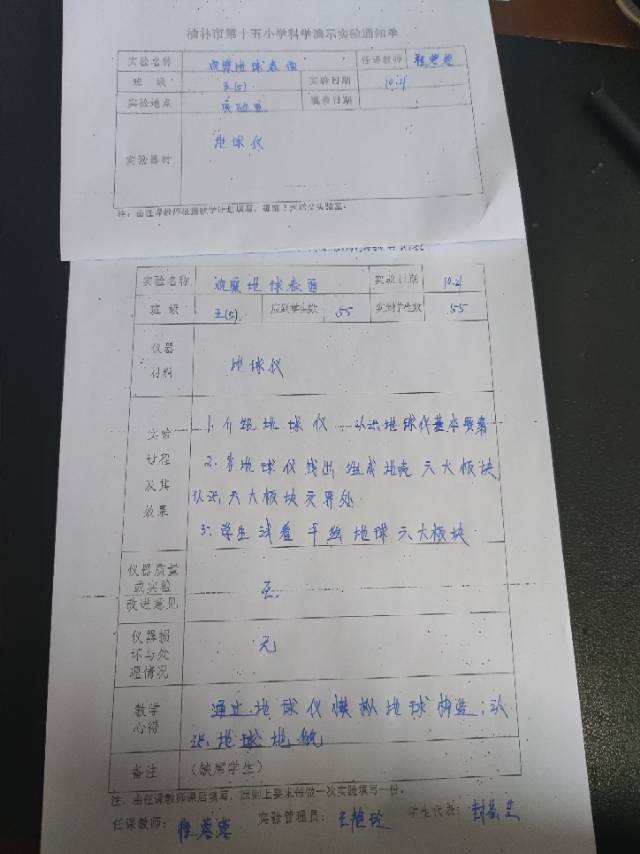 榆林市第十五小学科学演示实验通知单
实验名称 观察地球表面 任课教师
班 级 五(5) 实验日期 10.21
实验地点 实验室 填表日期
实验器材 地球仪
注：由任课教师根据教学计划填写，提前3天送交实验室。
实验名称 观察地球表面 实验日期 10.21
班 级 五(5) 应到学生数 55 实到学生数 55
仪器
材料 地球仪
实验
过程
及其
效果
1. 介绍地球仪 认识地球仪基本要素
2. 在地球仪找出组成地壳六大板块
认识六大板块交界处
3. 学生试着手绘地球六大板块
仪器质量
或实验
改进意见
无.
仪器损
坏与处
理情况
无
教学
心得
通过地球仪模拟地球构造；认
识地球地貌
备注 （缺席学生）
注：由任课教师课后填写，原则上要求每做一次实验填写一份。
任课教师： 实验管理员： 学生代表：